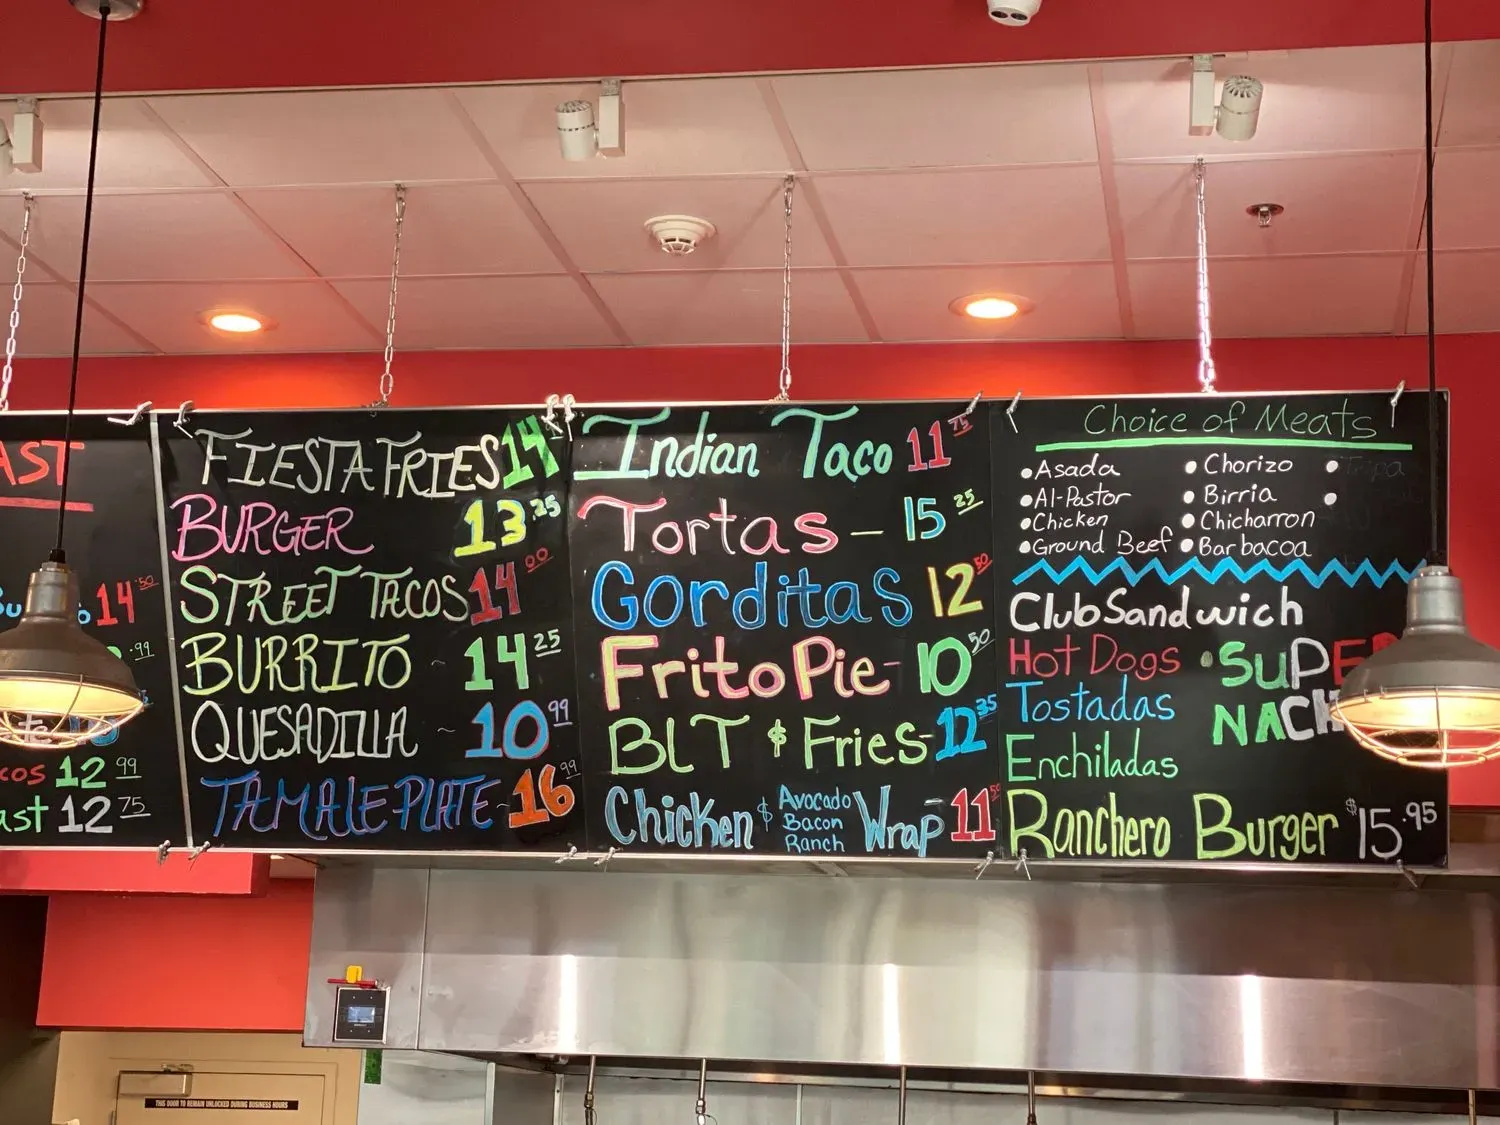 AST
14.50
.99
cos 12 99
ast 12 75
FIESTA FRIES 14
BURGER 13.25
STREET TACOS 14 00
BURRITO ~ 14 25
QUESADILLA ~ 10 99
TAMALE PLATE ~ 16 99
Indian Taco 11 75
Tortas — 15 25
Gorditas 12 50
Frito Pie - 10 50
BLT & Fries - 12 35
Chicken & Avocado Bacon Ranch Wrap - 11
Choice of Meats
• Asada
• Al-Pastor
• Chicken
• Ground Beef
• Chorizo
• Birria
• Chicharron
• Barbacoa
Club Sandwich
Hot Dogs
Tostadas
Enchiladas
• SUPE
NACH
Ranchero Burger $15.95
THIS DOOR TO REMAIN UNLOCKED DURING BUSINESS HOURS